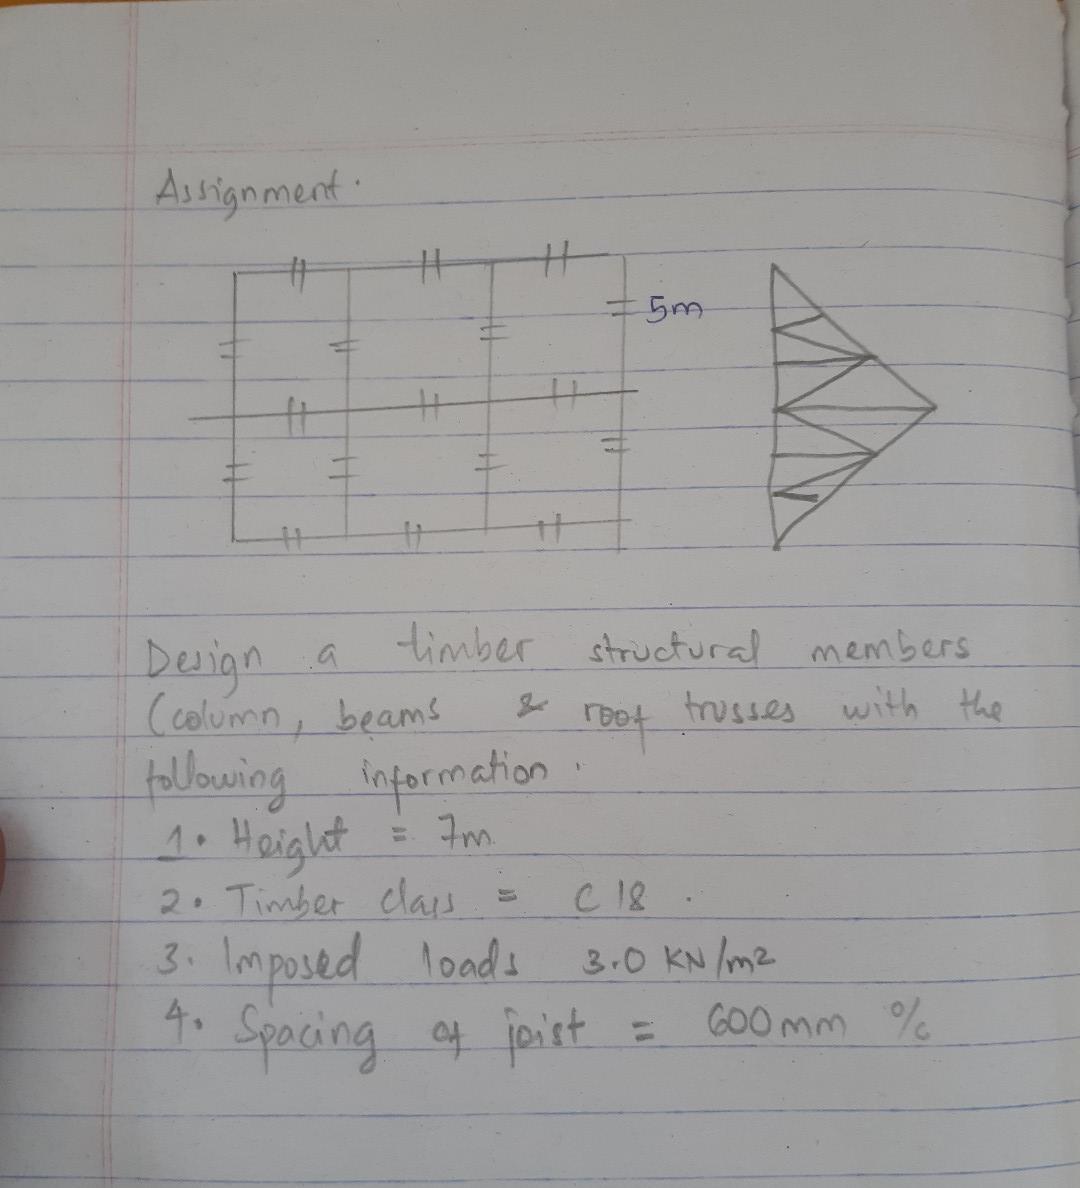 Assignment.
5m
Design a timber structural members
(column, beams & roof trusses with the
following information.
1. Height = 7m
2. Timber class = C 18.
3. Imposed loads 3.0 KN/m2
4. Spacing of joist = 600mm %